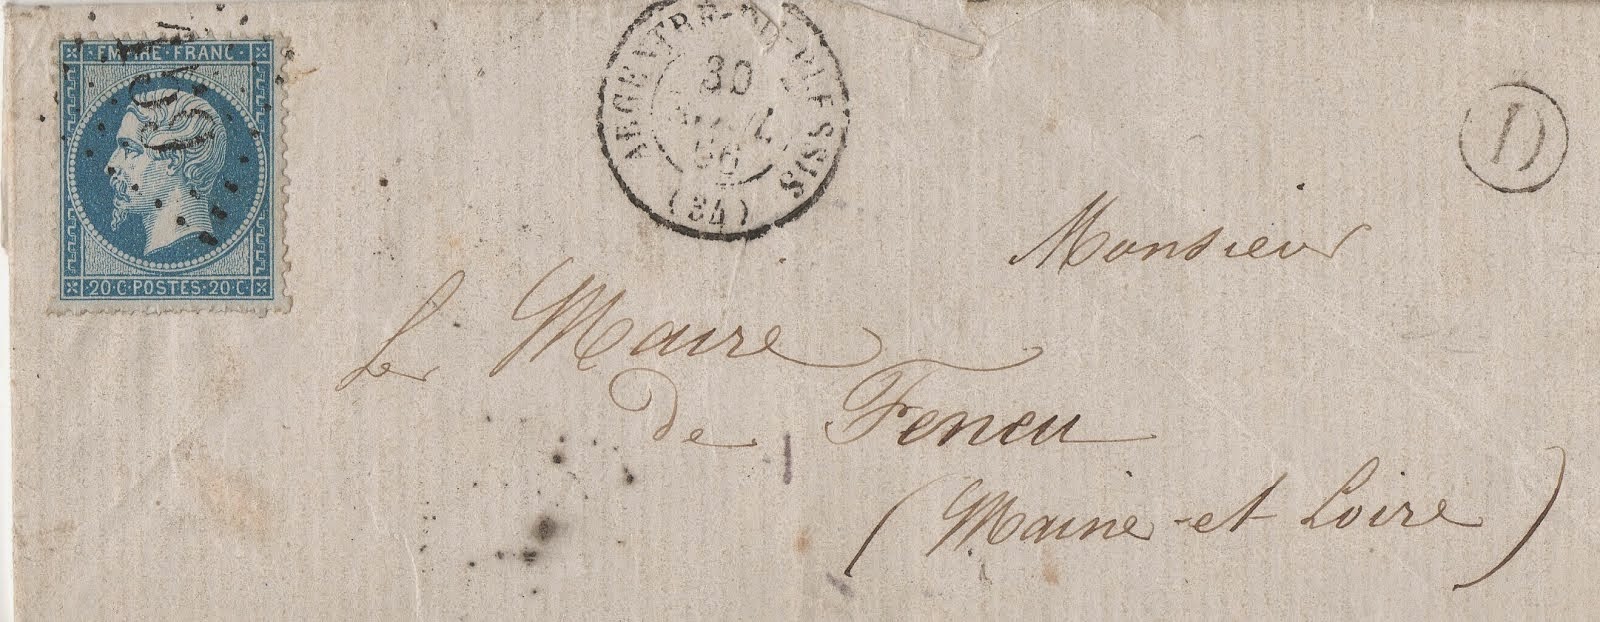 EMPIRE · FRANC ·
20 · C · POSTES · 20 · C ·
ARGENTRE-DU-PLESSIS
30
(34)
D
Monsieur
Le Maire
de Feneu
(Maine-et Loire)